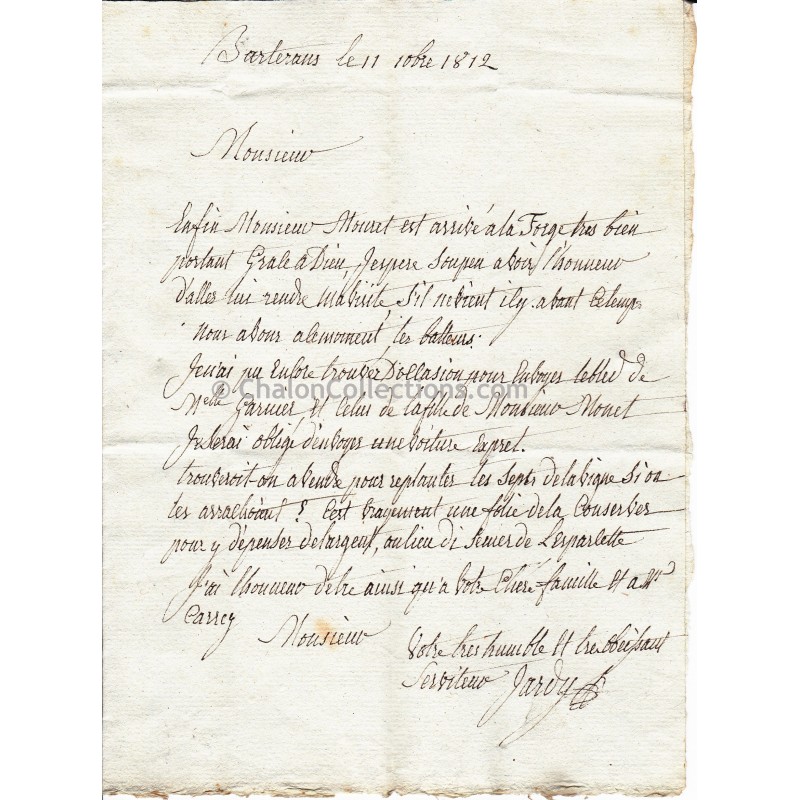 Barterans le 11 10bre 1812
Monsieur
Enfin Monsieur Mouret est arrivé a la Forge tres bien
portant Grace a Dieu, Jespere sous peu avoir l'honneur
d'aller lui rendre ma visite s'il ne vient icy avant ce temps
Nous avons ale moment les batteurs.
Je nai pu encore trouver d'occasion pour Envoyer le bled de
Melle Garnier et celui de la fille de Monsieur Monet
Je serai obligé d'envoyer une voiture expret.
trouveroit on a vendre pour replanter les seps de la vigne si on
les arrachoient ? C'est vrayement une folie de la Conserver
pour y dépenser de largent, au lieu di semer de Lesparcette
J'ai lhonneur detre ainsi qu'a votre chere famille et a Mr
Carrey
Monsieur
Votre tres humble et tres obeissant
Serviteur Jardy
© ChalonCollections.com